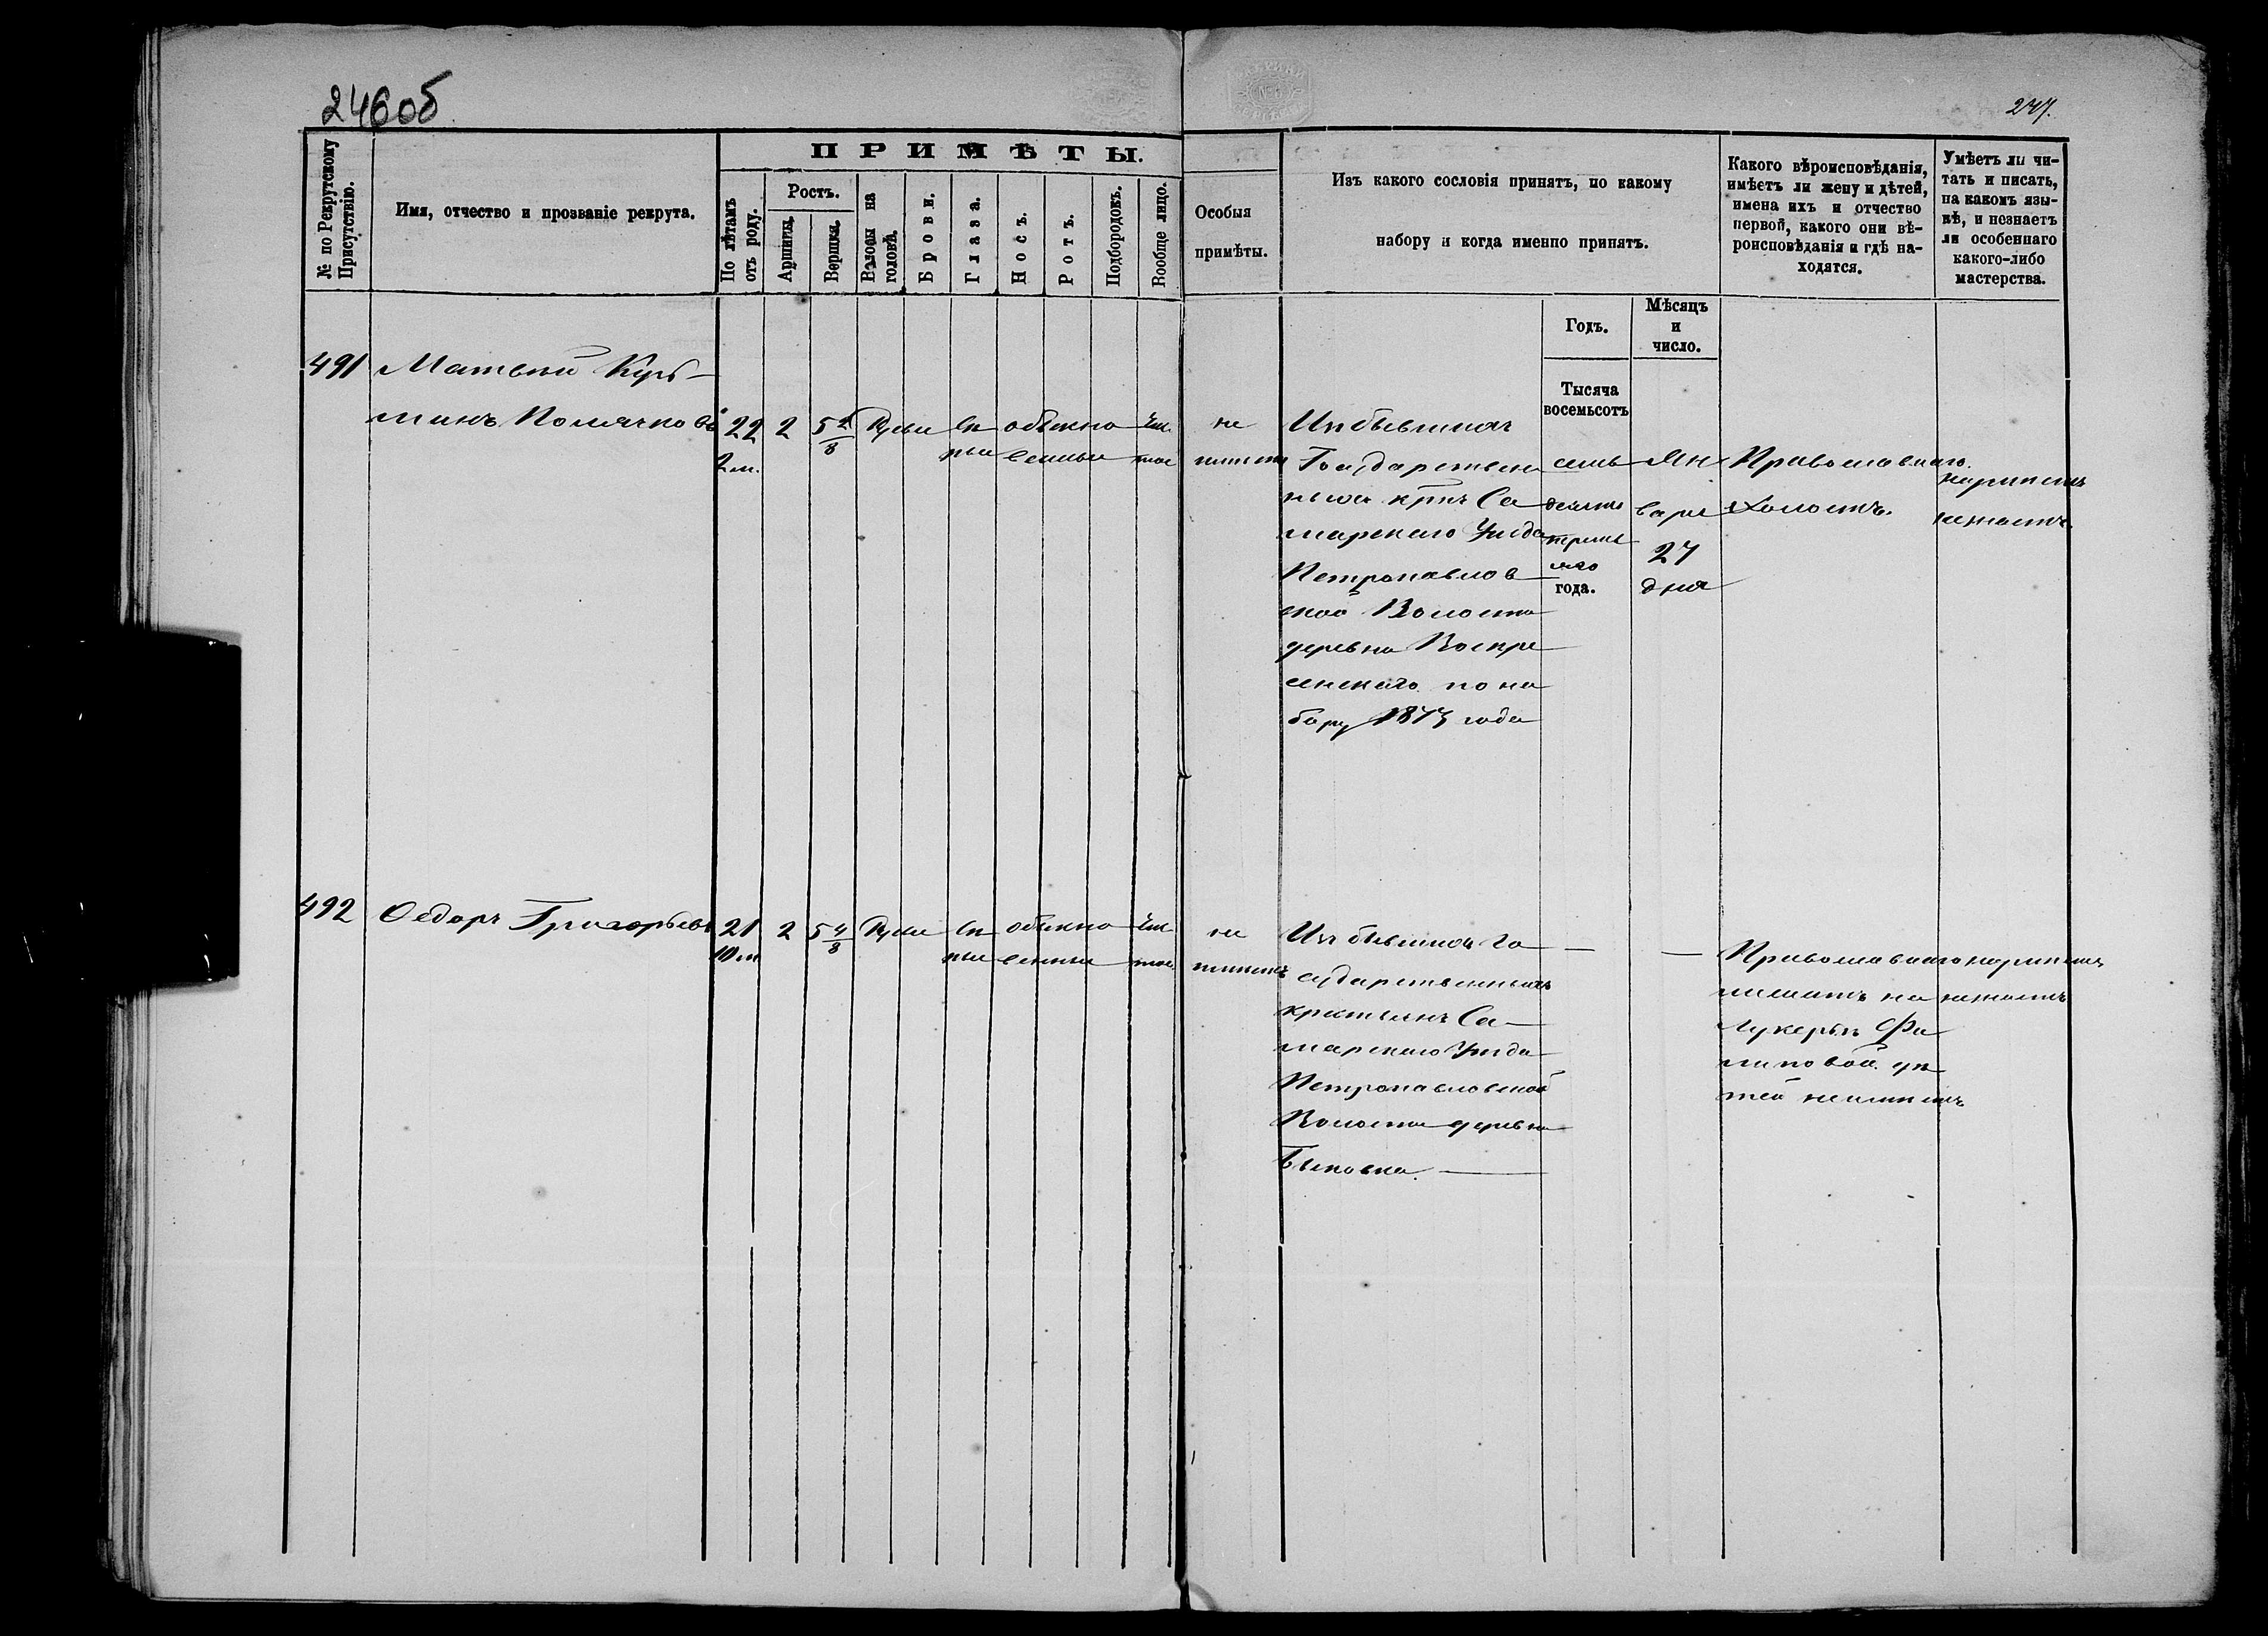 246об
247.
№ по Рекрутскому Присутствію.
Имя, отчество и прозваніе рекрута.
ПРИМѢТЫ.
По лѣтамъ отъ роду.
Ростъ.
Аршины.
Вершки.
Волосы на головѣ.
Брови.
Глаза.
Носъ.
Ротъ.
Подбородокъ.
Вообще лицо.
Особыя
примѣты.
Изъ какого сословія принятъ, по какому
набору и когда именно принятъ.
Какого вѣроисповѣданія,
имѣетъ ли жену и дѣтей,
имена ихъ и отчество
первой, какого они вѣ-
роисповѣданія и гдѣ на-
ходятся.
Умѣетъ ли чи-
тать и писать,
на какомъ язы-
кѣ, и незнаетъ
ли особеннаго
какого-либо
мастерства.
Годъ.
Мѣсяцъ
и
число.
Тысяча
восемьсотъ
491 Матвѣй Кузь-
минъ
22 2 5 2/8 Русые Сѣ- обыкно- Чис-
2 м. рые венные тое
не
имѣетъ
Изъ бывшихъ
Государствен
ныхъ крнъ Са
марскаго Уѣзда
Петропавлов
ской Волости
деревни Воскре
сенскаго по на
бору 1873 года
семь
десятъ
третья
яго
года.
Ян
варя
27
дня
Православнаго.
Холостъ.
неграмотн.
492 Ѳедоръ Григорьевъ
21 2 5 4/8 Русые Сѣ- обыкно- Чис-
10 м. рые венные тое
не
имѣетъ
Изъ бывшихъ Го
сударственныхъ
крестьянъ Са-
марскаго Уѣзда
Петропавловской
Волости деревни
Быковки.
Православнаго
женатъ на
Лукерьѣ Фи
липовой дѣ
тей неимѣетъ